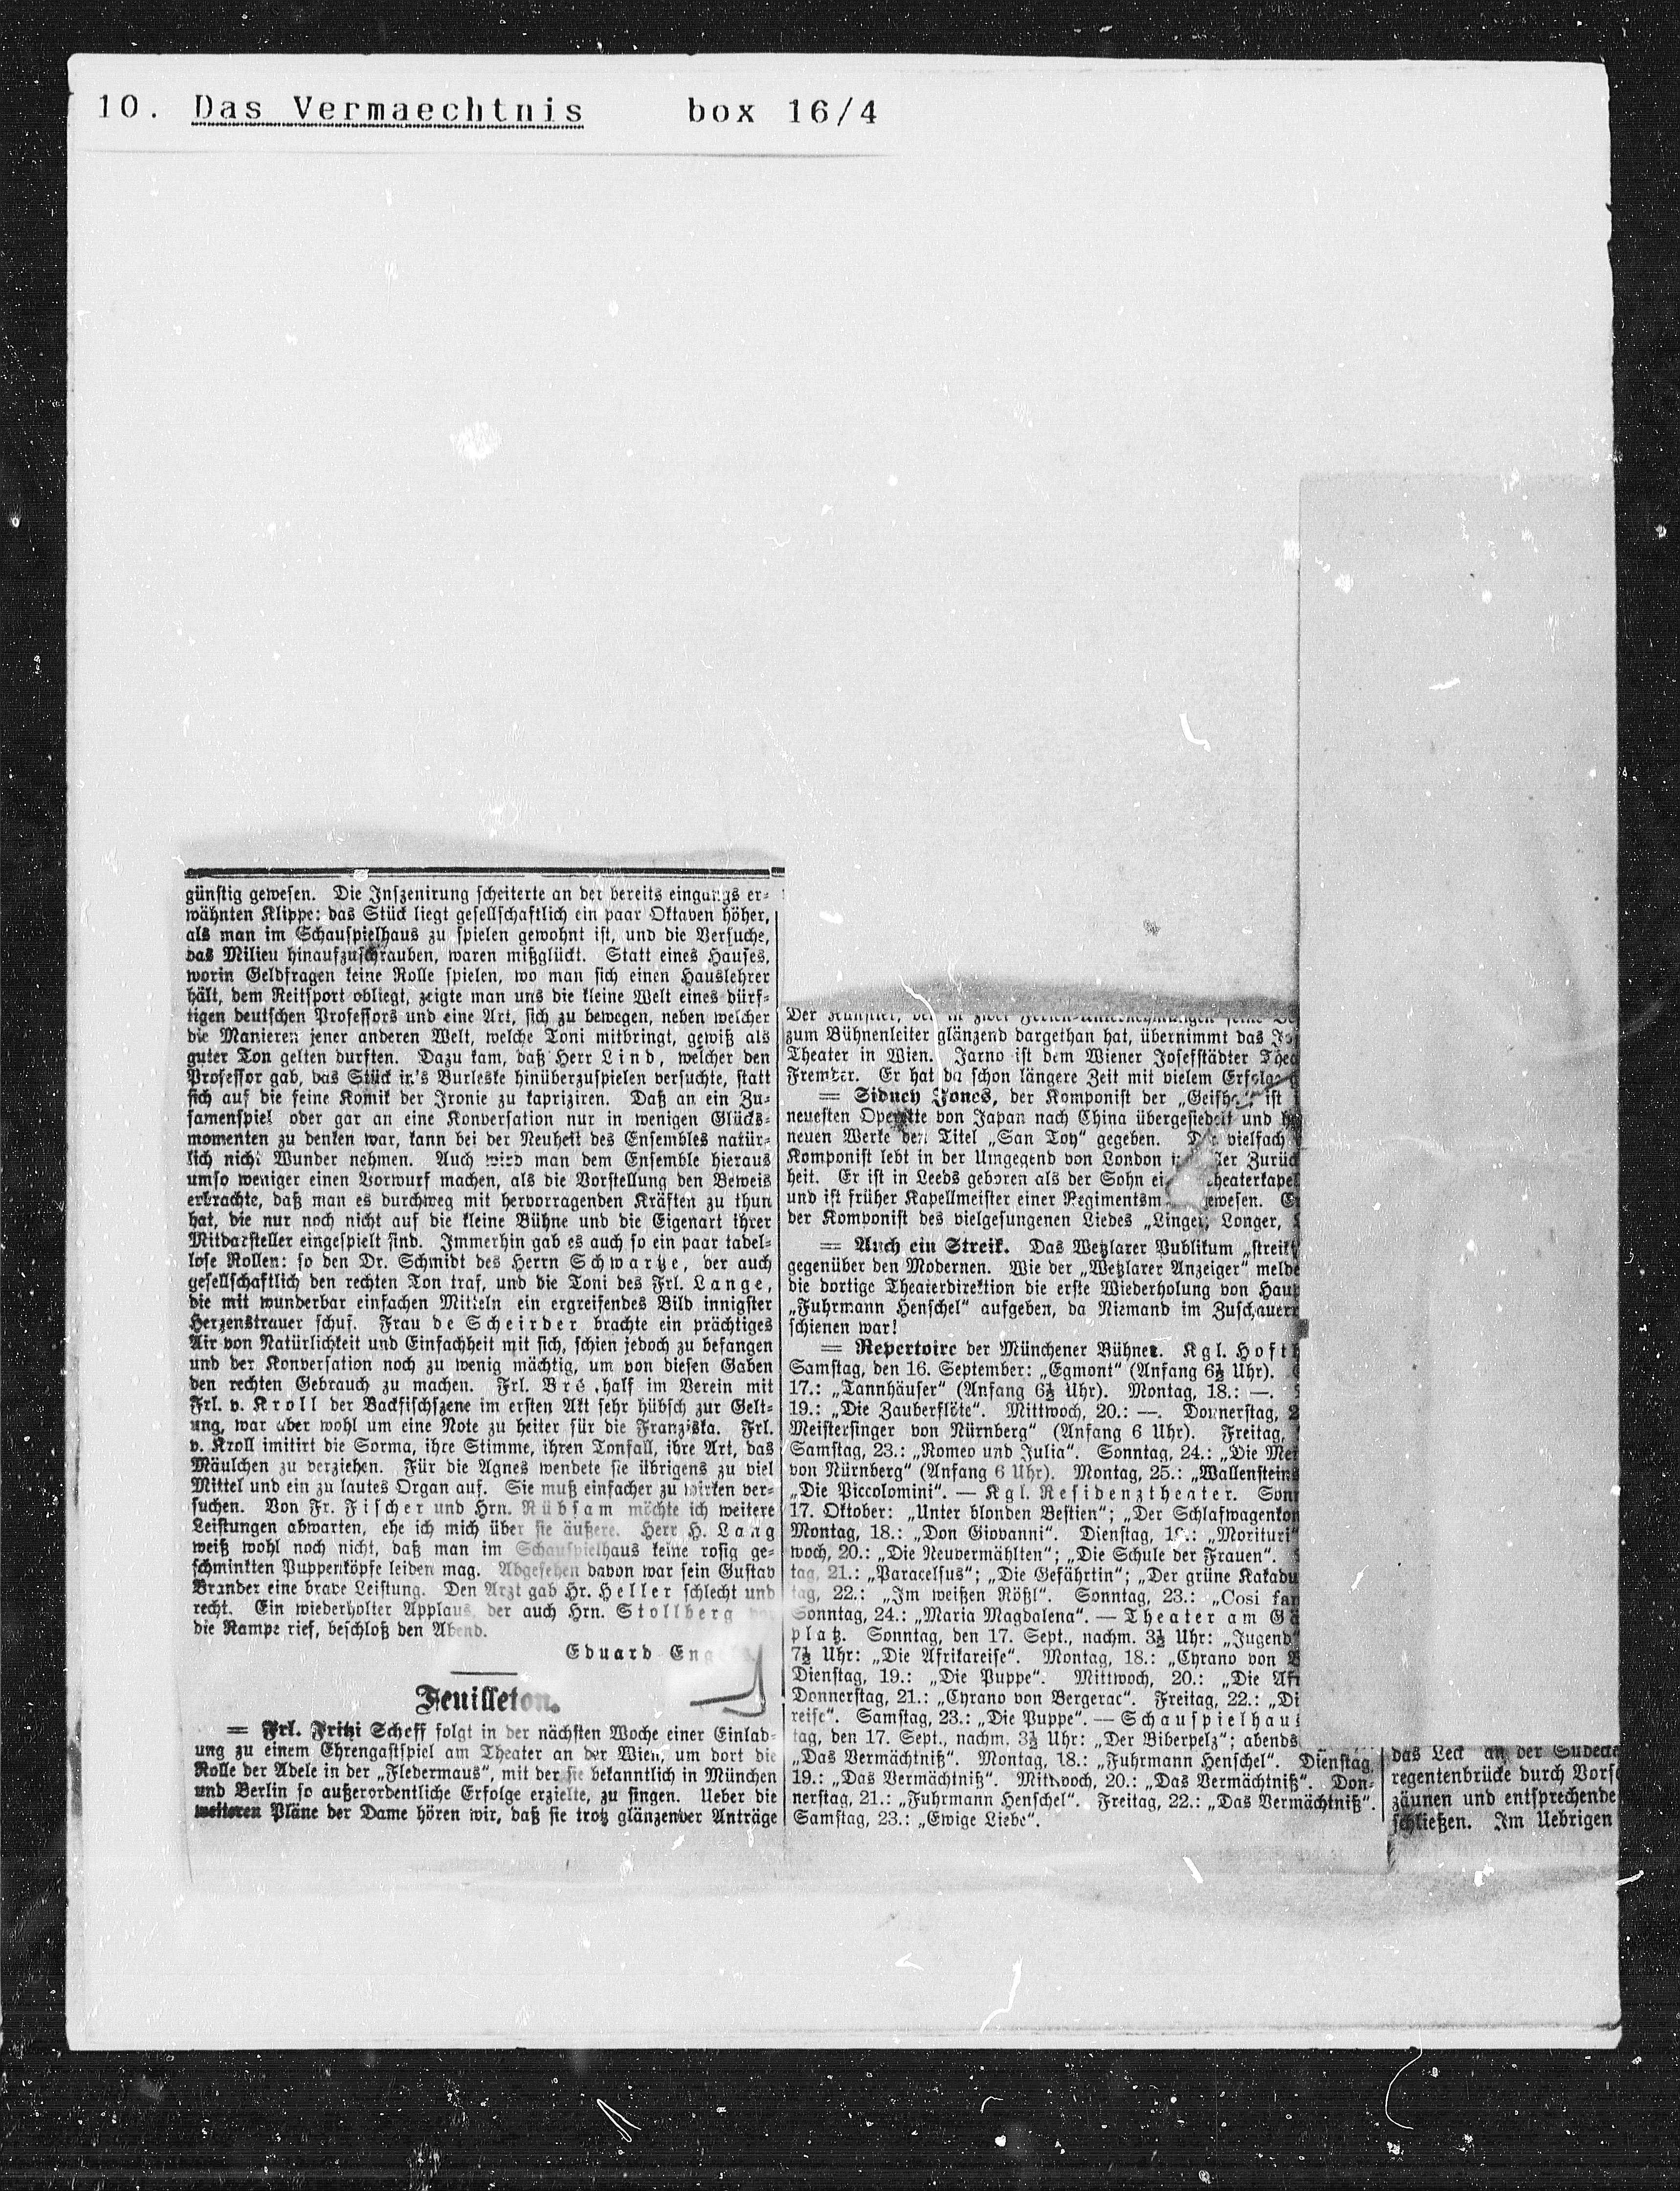 10. Das Vermaechtnis box 16/4
günstig gewesen. Die Inszenirung scheiterte an der bereits eingangs er-
wähnten Klippe: das Stück liegt gesellschaftlich ein paar Oktaven höher,
als man im Schauspielhaus zu spielen gewohnt ist, und die Versuche,
das Milieu hinaufzuschrauben, waren mißglückt. Statt eines Hauses,
worin Geldfragen keine Rolle spielen, wo man sich einen Hauslehrer
hält, dem Reitsport obliegt, zeigte man uns die kleine Welt eines dürf-
tigen deutschen Professors und eine Art, sich zu bewegen, neben welcher
die Manieren jener anderen Welt, welche Toni mitbringt, gewiß als
guter Ton gelten durften. Dazu kam, daß Herr Lind, welcher den
Professor gab, das Stück in's Burleske hinüberzuspielen versuchte, statt
sich auf die feine Komik der Ironie zu kapriziren. Daß an ein Zu-
samenspiel oder gar an eine Konversation nur in wenigen Glücks-
momenten zu denken war, kann bei der Neuheit des Ensembles natür-
lich nicht Wunder nehmen. Auch wird man dem Ensemble hieraus
umso weniger einen Vorwurf machen, als die Vorstellung den Beweis
erbrachte, daß man es durchweg mit hervorragenden Kräften zu thun
hat, die nur noch nicht auf die kleine Bühne und die Eigenart ihrer
Mitdarsteller eingespielt sind. Immerhin gab es auch so ein paar tadel-
lose Rollen: so den Dr. Schmidt des Herrn Schwartze, der auch
gesellschaftlich den rechten Ton traf, und die Toni des Frl. Lange,
die mit wunderbar einfachen Mitteln ein ergreifendes Bild innigster
Herzenstrauer schuf. Frau de Scheirder brachte ein prächtiges
Air von Natürlichkeit und Einfachheit mit sich, schien jedoch zu befangen
und der Konversation noch zu wenig mächtig, um von diesen Gaben
den rechten Gebrauch zu machen. Frl. Bré half im Verein mit
Frl. v. Kroll der Backfischszene im ersten Akt sehr hübsch zur Gelt-
ung, war aber wohl um eine Note zu heiter für die Franziska. Frl.
v. Kroll imitirt die Sorma, ihre Stimme, ihren Tonfall, ihre Art, das
Mäulchen zu verziehen. Für die Agnes wendete sie übrigens zu viel
Mittel und ein zu lautes Organ auf. Sie muß einfacher zu wirken ver-
suchen. Von Fr. Fischer und Hrn. Rübsam möchte ich weitere
Leistungen abwarten, ehe ich mich über sie äußere. Herr H. Lang
weiß wohl noch nicht, daß man im Schauspielhaus keine rosig ge-
schminkten Puppenköpfe leiden mag. Abgesehen davon war sein Gustav
Brander eine brave Leistung. Den Arzt gab Hr. Heller schlecht und
recht. Ein wiederholter Applaus, der auch Hrn. Stollberg vor
die Rampe rief, beschloß den Abend.
Eduard
Feuilleton.
= Frl. Fritzi Scheff folgt in der nächsten Woche einer Einlad-
ung zu einem Ehrengastspiel am Theater an der Wien, um dort die
Rolle der Adele in der „Fledermaus“, mit der sie bekanntlich in München
und Berlin so außerordentliche Erfolge erzielte, zu singen. Ueber die
weiteren Pläne der Dame hören wir, daß sie trotz glänzender Anträge
Der Künstler, der in zwei Ferien-Unternehmungen seine
zum Bühnenleiter glänzend dargethan hat, übernimmt das
Theater in Wien. Jarno ist dem Wiener Josefstädter
Fremder. Er hat da schon längere Zeit mit vielem Erfolge
= Sidney Jones, der Komponist der „Geisha“ ist
neuesten Operette von Japan nach China übergesiedelt und
neuen Werke den Titel „San Toy“ gegeben. Der vielfach
Komponist lebt in der Umgegend von London
heit. Er ist in Leeds geboren als der Sohn
und ist früher Kapellmeister einer gewesen.
der Komponist des vielgesungenen Liedes „Linger, Longer,
= Auch ein Streik. Das Wetzlarer Publikum „streikt
gegenüber den Modernen. Wie der „Wetzlarer Anzeiger“
die dortige Theaterdirektion die erste Wiederholung von
„Fuhrmann Henschel“ aufgeben, da Niemand im
schienen war!
= Repertoire der Münchener Bühnen. Kgl.
Samstag, den 16. September: „Egmont“ (Anfang 6½ Uhr).
17.: „Tannhäuser“ (Anfang 6½ Uhr). Montag, 18.: —.
19.: „Die Zauberflöte“. Mittwoch, 20.: —. Donnerstag,
Meistersinger von Nürnberg“ (Anfang 6 Uhr). Freitag,
Samstag, 23.: „Romeo und Julia“. Sonntag, 24.: „Die
von Nürnberg“ (Anfang 6 Uhr). Montag, 25.: „Wallensteins
„Die Piccolomini“. — Kgl. Residenztheater.
17. Oktober: „Unter blonden Bestien“; „Der
Montag, 18.: „Don Giovanni“. Dienstag, 19.: „Morituri“
woch, 20.: „Die Neuvermählten“; „Die Schule der Frauen“.
tag, 21.: „Paracelsus“; „Die Gefährtin“; „Der grüne Kakadu
tag, 22.: „Im weißen Rößl“. Sonntag, 23.: „Cosi
Sonntag, 24.: „Maria Magdalena“. — Theater am
platz. Sonntag, den 17. Sept., nachm. 3½ Uhr: „Jugend“
7½ Uhr: „Die Afrikareise“. Montag, 18.: „Cyrano von
Dienstag, 19.: „Die Puppe“. Mittwoch, 20.: „Die
Donnerstag, 21.: „Cyrano von Bergerac“. Freitag, 22.:
reise“. Samstag, 23.: „Die Puppe“. — Schauspielhaus
tag, den 17. Sept., nachm. 3½ Uhr: „Der Biberpelz“; abends
„Das Vermächtniß“. Montag, 18.: „Fuhrmann Henschel“. Dienstag,
19.: „Das Vermächtniß“. Mittwoch, 20.: „Das Vermächtniß“. Don-
nerstag, 21.: „Fuhrmann Henschel“. Freitag, 22.: „Das Vermächtniß“.
Samstag, 23.: „Ewige Liebe“.
das Leck an der
regentenbrücke durch
zäunen und entsprechende
schließen. Im Uebrigen